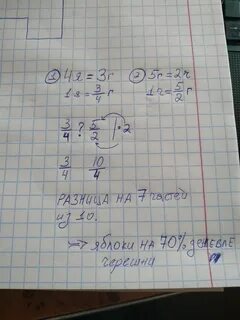 ① 4я = 3г ② 5г = 2ч
1я = 3/4 г 1ч = 5/2 г
3/4 ? 5/2 | · 2
3/4 10/4
РАЗНИЦА НА 7 частей
из 10.
⇒ яблоки на 70% дешевле
черешни